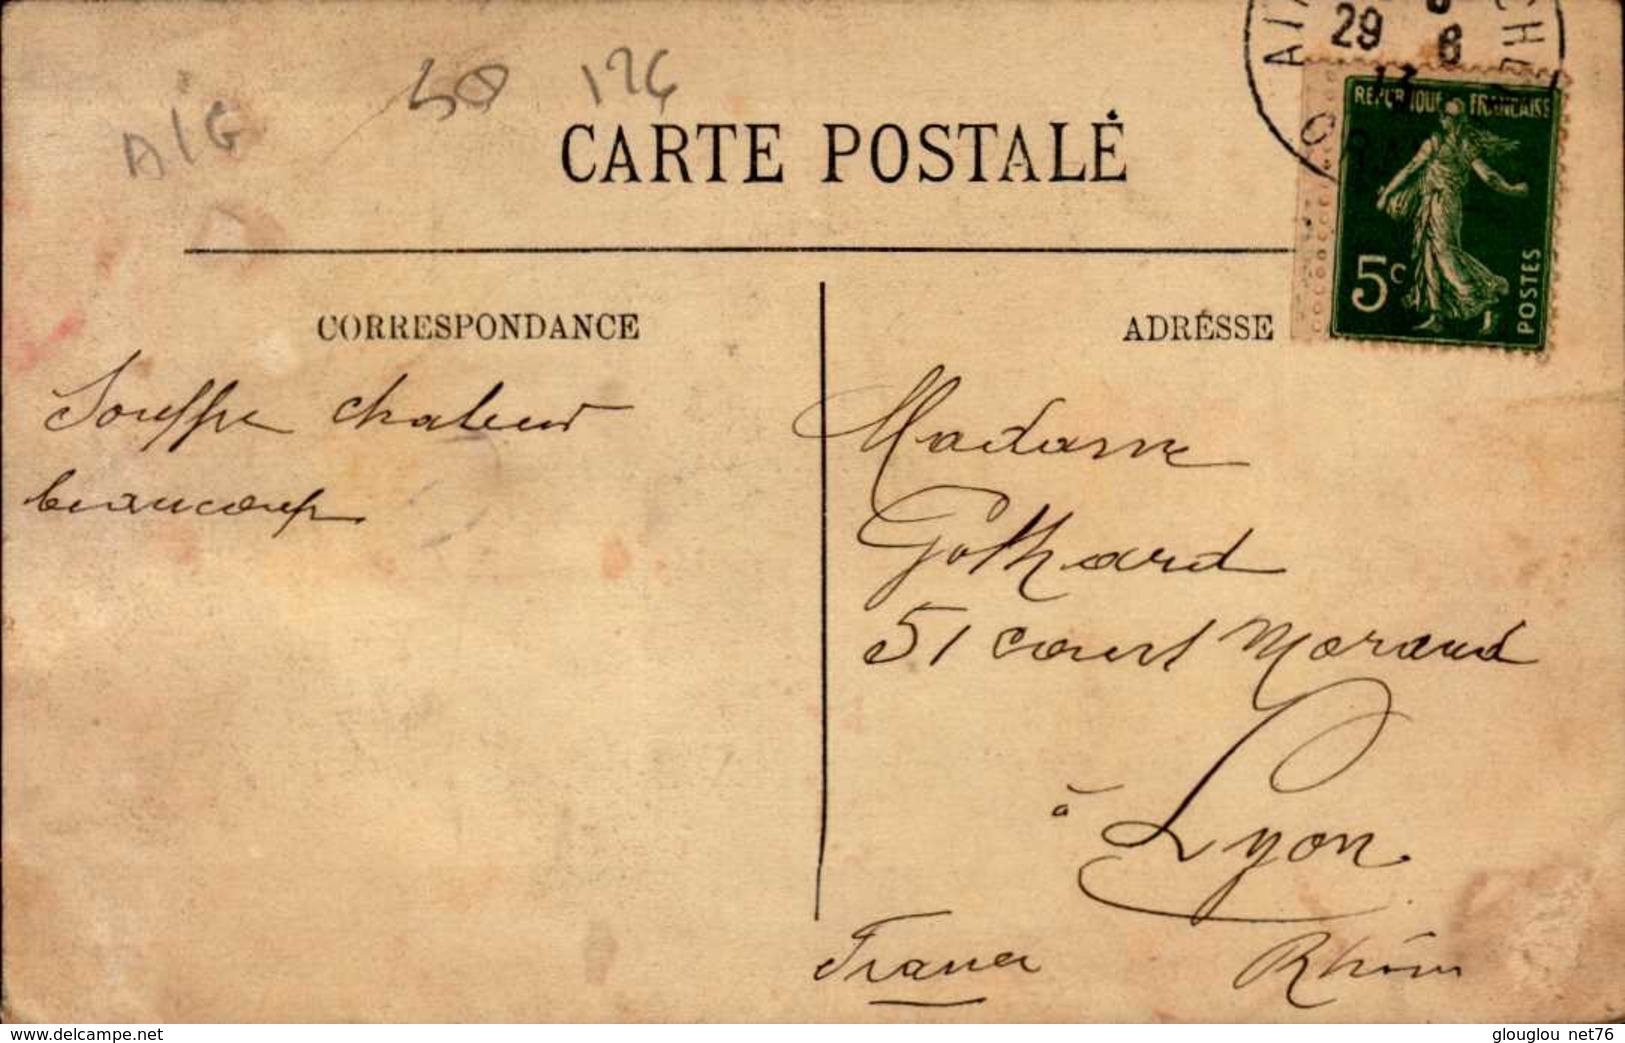 AIG
50 126
CARTE POSTALE
29 6
REPUBLIQUE FRANCAISE
5c
POSTES
CORRESPONDANCE
ADRÉSSE
Souffre chaleur
beaucoup
Madame
Gothard
51 cours Morand
à Lyon
France
Rhône
www.delcampe.net
glouglou net76